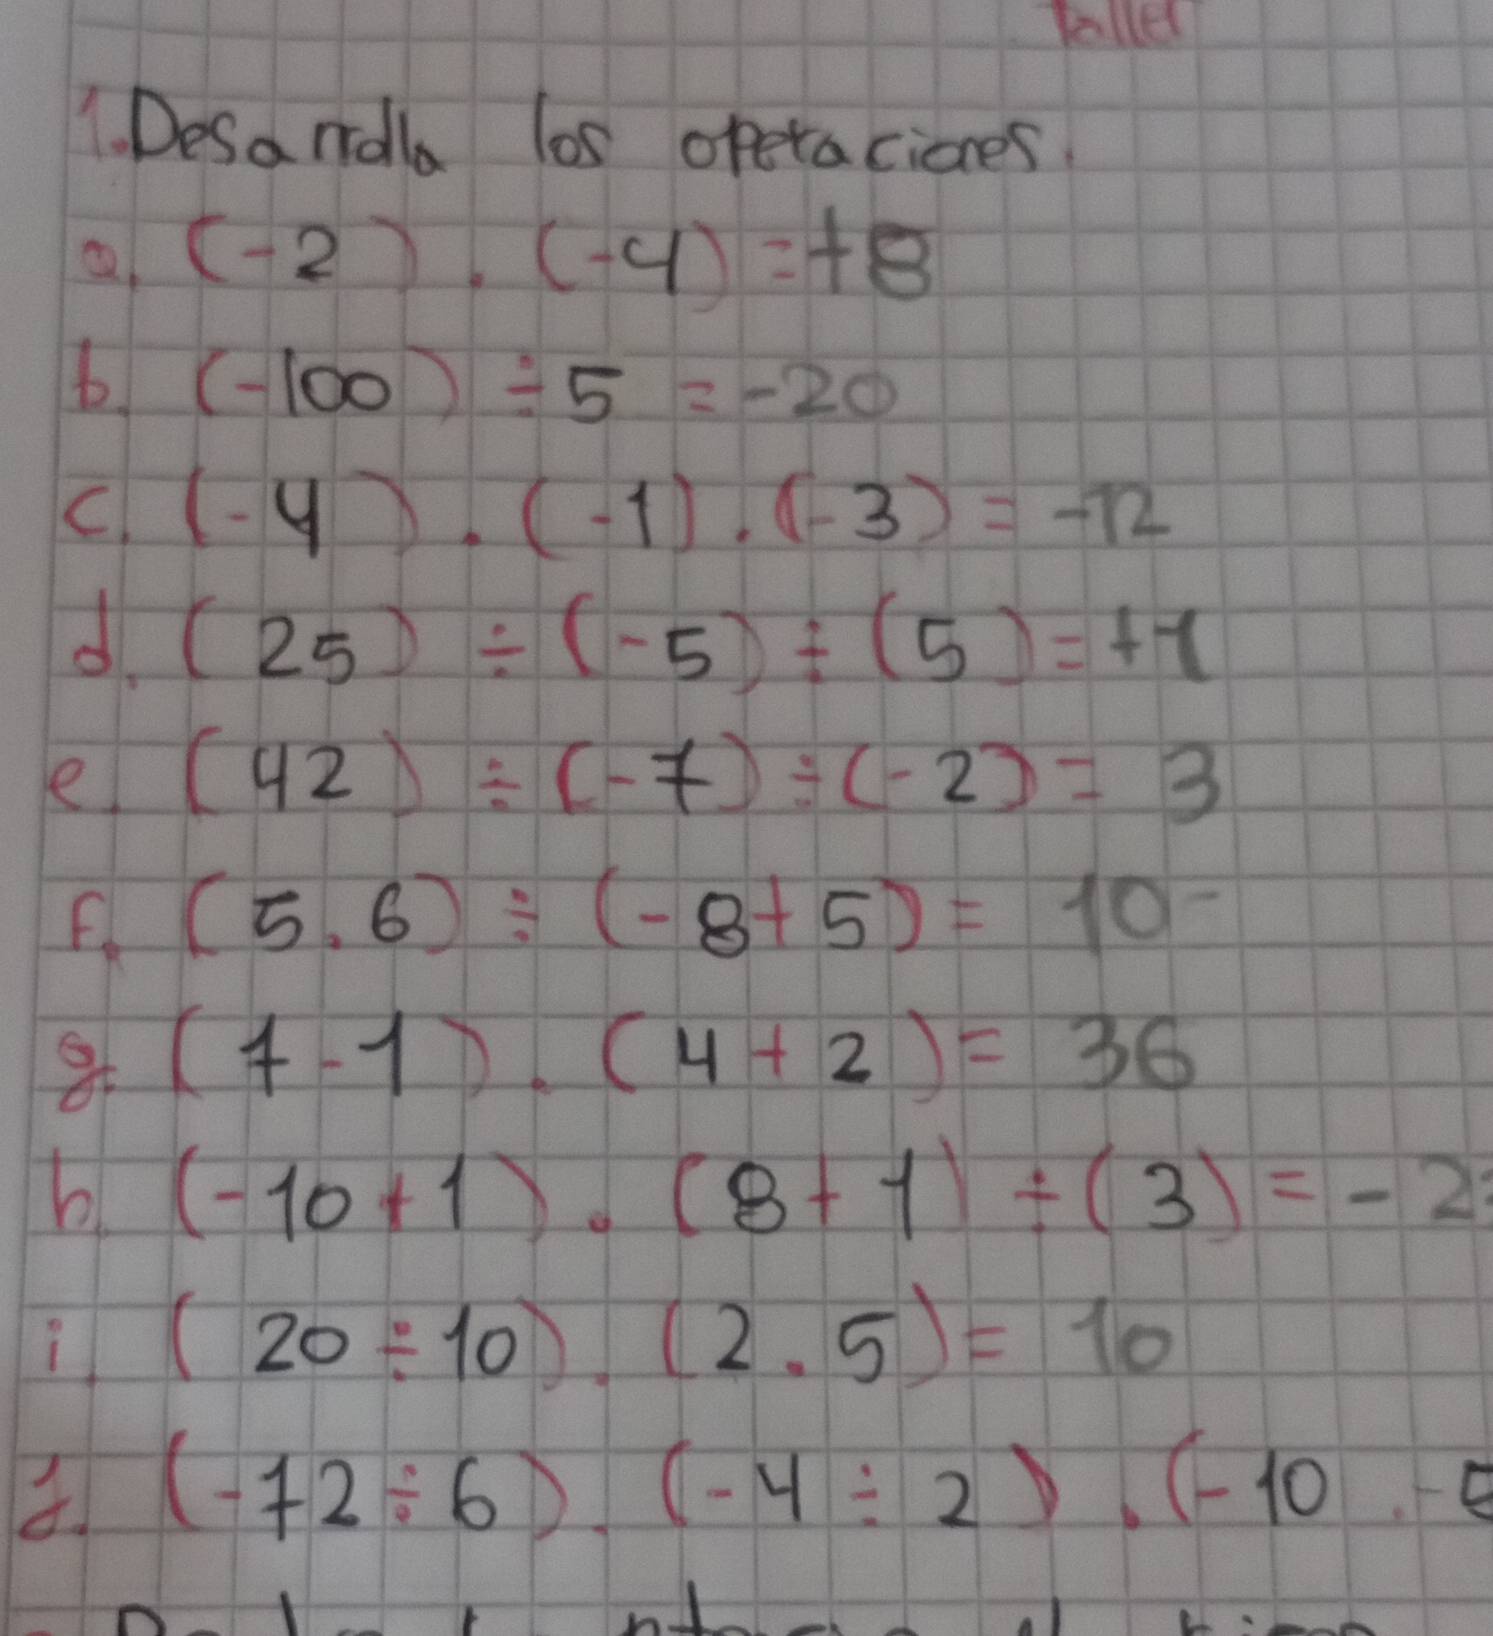 Taller
1. Desarrolla los operaciones.
a. (-2) . (-4) = +8
b. (-100) ÷ 5 = -20
c. (-4) . (-1) . (-3) = -12
d. (25) ÷ (-5) ÷ (5) = +1
e. (42) ÷ (-7) ÷ (-2) = 3
f. (5 . 6) ÷ (-8 + 5) = 10-
g. (7 - 1) . (4 + 2) = 36
h. (-10 + 1) . (8 + 1) ÷ (3) = -2
i. (20 ÷ 10) . (2 . 5) = 10
j. (-72 ÷ 6) . (-4 ÷ 2) . (-10 . -5